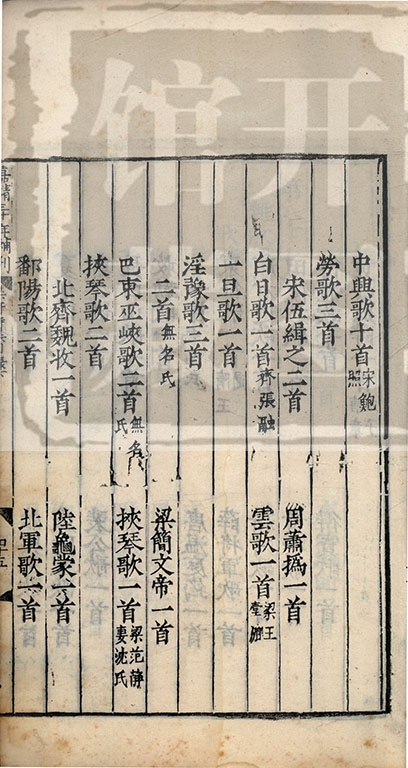 中興歌十首 宋鮑照
勞歌三首
宋伍緝之二首 周蕭撝一首
白日歌一首 齊張融 雲歌一首 梁王
一旦歌一首
淫豫歌三首
二首 無名氏 梁簡文帝一首
巴東巫峽歌二首 無名氏 挾琴歌一首 梁范靜妻沈氏
挾琴歌二首
北齊魏收一首 陸龜蒙一首
鄱陽歌二首 北軍歌一首
嘉靖三十年補刊
四十五
开
馆